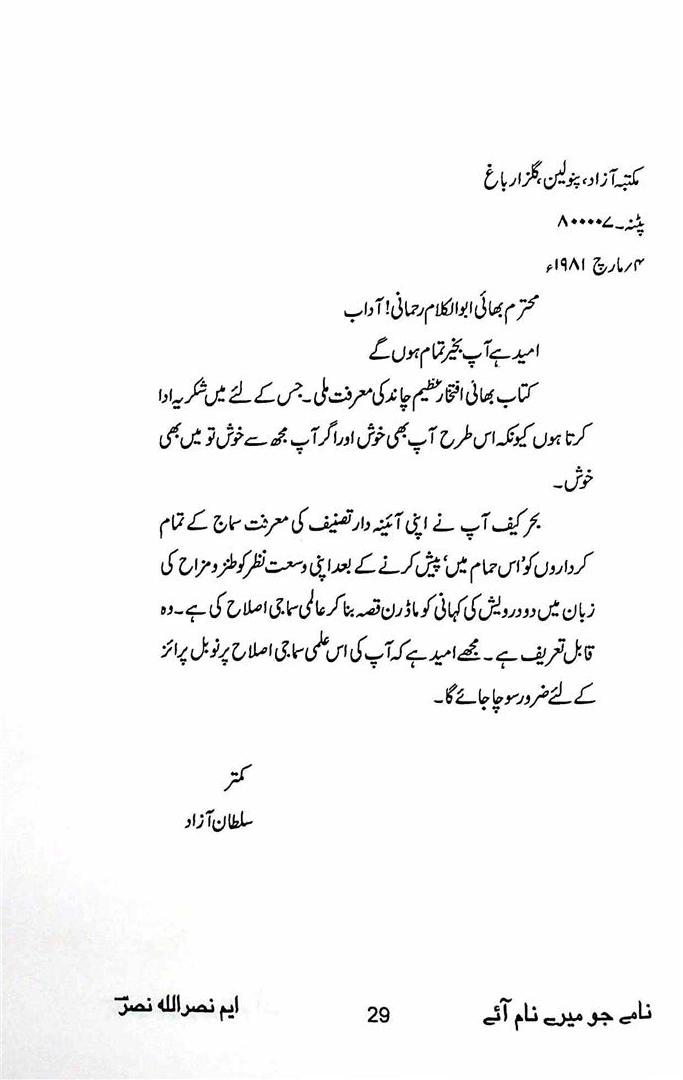 مکتبہ آزاد، پنولین، گلزار باغ
پٹنہ۔ ۸۰۰۰۰۷
۴/مارچ ۱۹۸۱ء
محترم بھائی ابوالکلام رحمانی! آداب
امید ہے آپ بخیر تمام ہوں گے
کتاب بھائی افتخار عظیم چاند کی معرفت ملی۔ جس کے لئے میں شکریہ ادا
کرتا ہوں کیونکہ اس طرح آپ بھی خوش اور اگر آپ مجھ سے خوش تو میں بھی
خوش۔
بحر کیف آپ نے اپنی آئینہ دار تصنیف کی معرفت سماج کے تمام
کرداروں کو 'اس حمام میں' پیش کرنے کے بعد اپنی وسعت نظر کو طنز و مزاح کی
زبان میں دو درویش کی کہانی کو ماڈرن قصہ بنا کر عالمی سماجی اصلاح کی ہے۔ وہ
قابل تعریف ہے۔ مجھے امید ہے کہ آپ کی اس علمی سماجی اصلاح پر نوبل پرائز
کے لئے ضرور سوچا جائے گا۔
کمتر
سلطان آزاد
نامے جو میرے نام آئے 29 ایم نصر اللہ نصرؔ